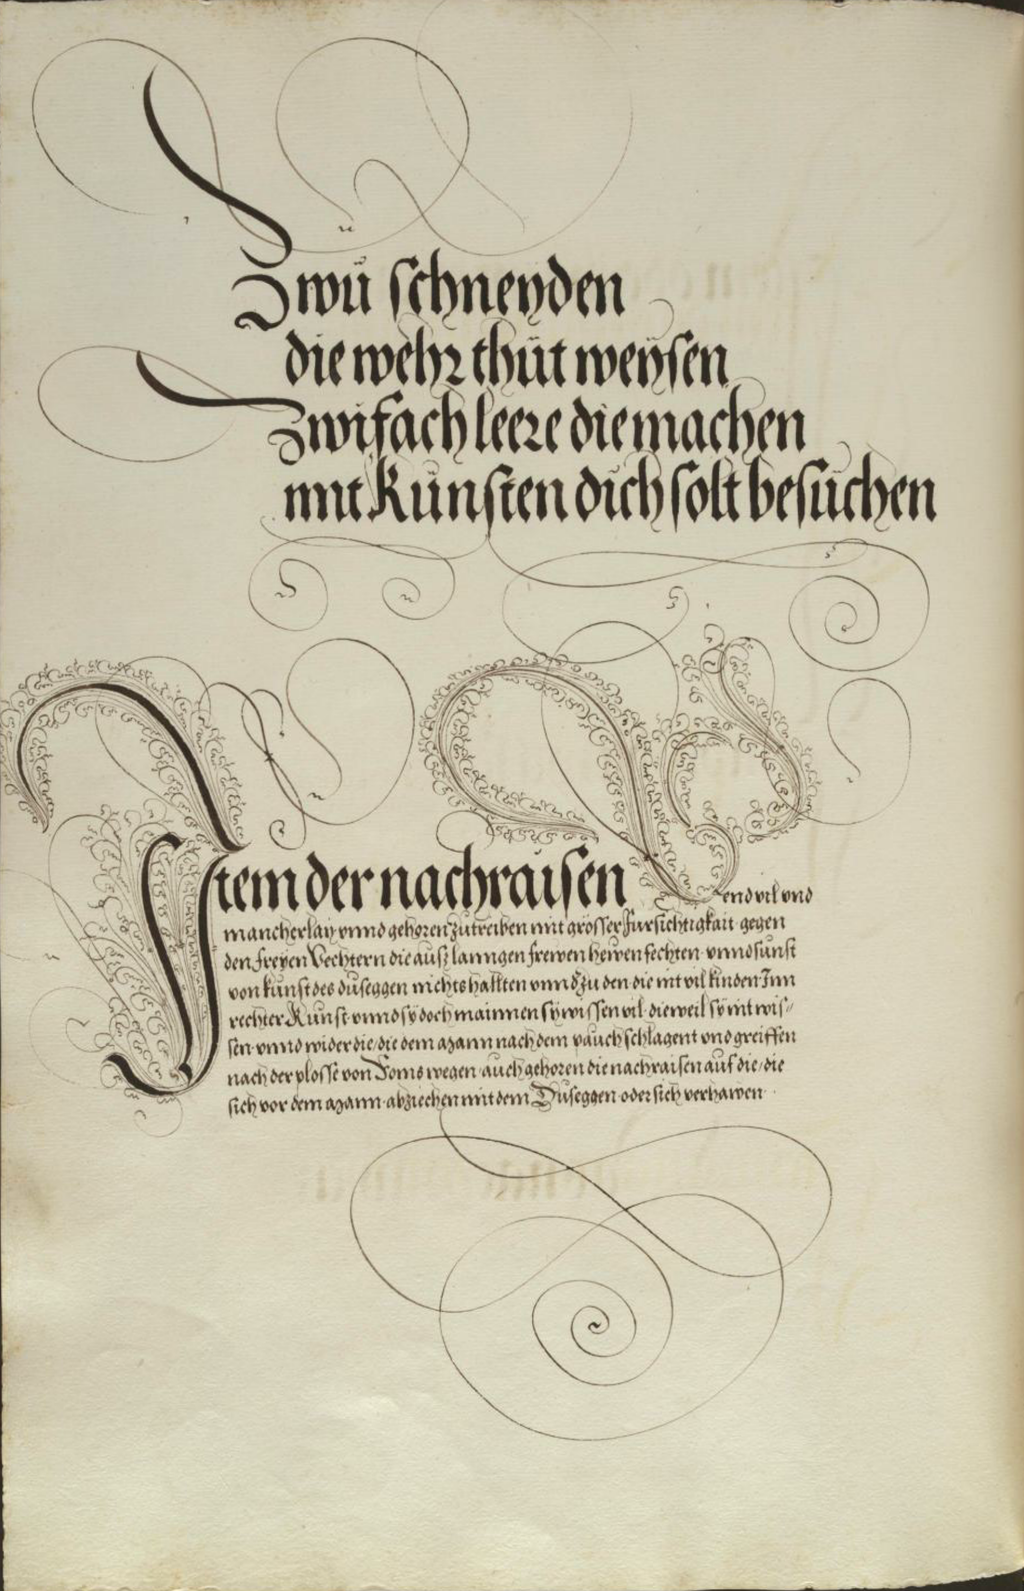 Zwu schneyden
die wehr thut weysen
Zwifach leere die machen
mit Kunsten dich solt besuchen
Item der nachraisen Send vil vnd
mancherlay vnnd gehoren zutreiben mit grosser Fursichtigkait gegen
den freyen Vechtern die auß lanngen frewen hewen fechten vnnd sunst
von kunst des duseggen nichts hallten vnnd zu den die mt vil kinden Inn
rechter Kunst vnnd sy doch mainnen sy wissen vil dieweil sy mt wis//
sen vnnd wider die die dem Mann nach dem pauch schlagent vnd greiffen
nach der plosse von Foms wegen auch gehoren die nachraisen auf die die
sich vor dem Mann abziechen mit dem Duseggen oder sich verhawen